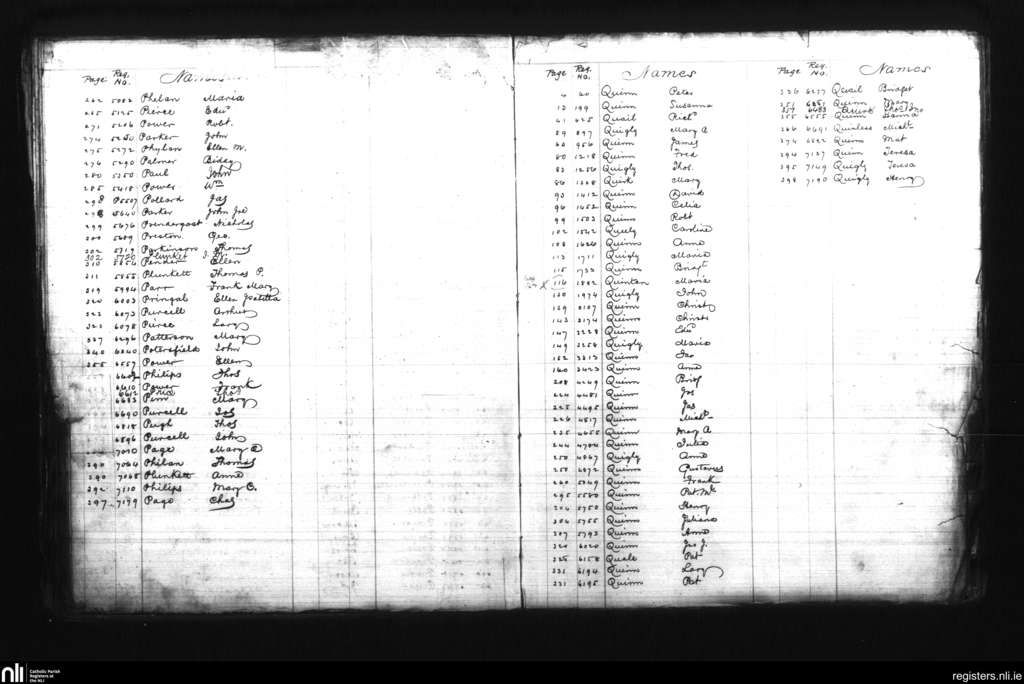 Page Reg. No. Names
262 5082 Phelan Maria
265 5125 Pierce Edwd
271 5206 Power Robt.
274 5250 Parker John
275 5272 Phylan Ellen M.
276 5290 Palmer Biddy
280 5350 Paul John
285 5418 Power Wm
298 5507 Pollard Jas
298 5640 Parker John Jos
299 5676 Prendergast Nicholas
300 5689 Preston Geo.
302 5719 Parkinson Thomas
302 5720 Plunket
310 5854 Pender Ellen
311 5855 Plunkett Thomas P.
319 5994 Parr Frank Mary
320 6003 Pringal Ellen
323 6073 Purcell Arthur
325 6098 Pierce Lary
337 6296 Patterson Mary
340 6340 Potersfield John
355 6557 Power Ellen
Philips Thos
6610 Power Frank
6612 Price Thos
6683 Pim Mary
6690 Purcell Jos
6818 Pugh Thos
6896 Purcell John
7010 Page Mary E
290 7064 Philan Thomas
290 7068 Plunkett Anne
292 7110 Philips Mary C.
297 7179 Page Chas
Page Reg. No. Names
4 20 Quinn Peter
12 199 Quinn Susanna
41 625 Quail Richd
59 897 Quigly Mary A
60 956 Quinn James
80 1218 Quinn Fred
83 1256 Quigly Thos.
86 1308 Quirk Mary
93 1412 Quinn David
96 1452 Quinn Celia
99 1503 Quinn Robt
102 1542 Quely Caroline
108 1626 Quinn Anne
113 1711 Quigly Maria
115 1732 Quinn Bridgt
X 116 1802 Quintan Maria
130 1974 Quigly John
139 2107 Quinn Christy
143 2174 Quinn Christr
147 2228 Quinn Edwd
149 2258 Quigly Maria
152 2313 Quinn Jas
160 2423 Quinn Anne
208 4249 Quinn Bridgt
224 4481 Quinn Jos
225 4495 Quinn Jas
226 4517 Quinn Michl
235 4655 Quinn Mary A
244 4784 Quinn Julia
250 4867 Quigly Anne
250 4872 Quinn Gustavus
260 5049 Quinn Frank
295 5580 Quinn Pat. Mk
304 5750 Quinn Henry
304 5755 Quinn Juliana
307 5793 Quinn Anne
320 6020 Quinn Jas J.
325 6158 Quale Pat
331 6194 Quinn Lary
331 6195 Quinn Pat
Page Reg. No. Names
336 6277 Quail Bridget
351 6481 Quinn Mary
355 6555 Quinn
366 6691 Quinless Michl
374 6822 Quinn Mat
294 7127 Quinn Teresa
295 7149 Quigly Teresa
298 7190 Quigly Henry
nli
Catholic Parish
Registers at
the NLI
registers.nli.ie